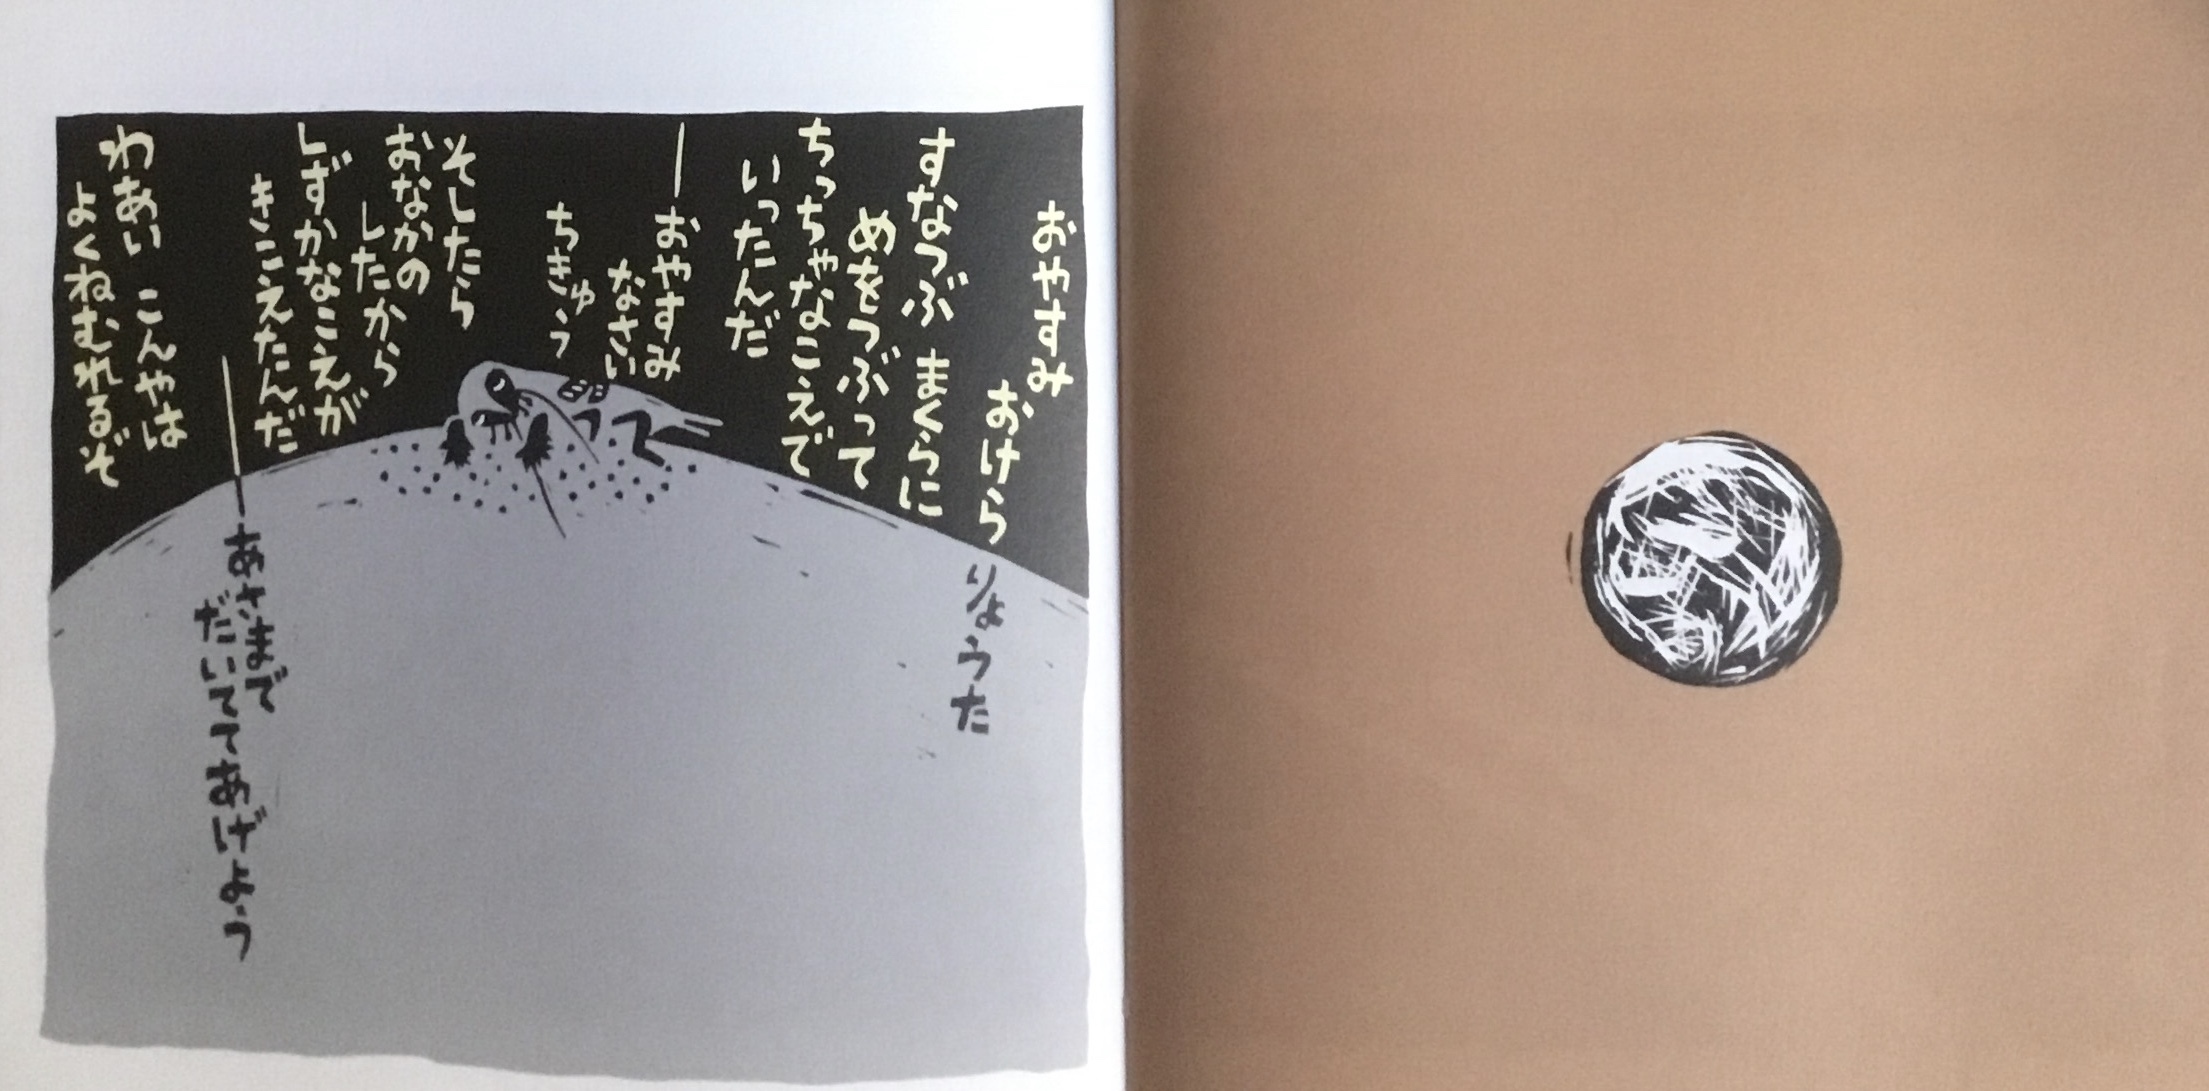 おやすみ
おけら りょうた
すなつぶ まくらに
めをつぶって
ちっちゃなこえで
いったんだ
―おやすみ
なさい
ちきゅう
そしたら
おなかの
したから
しずかなこえが
きこえたんだ
―あさまで
だいててあげよう
わあい こんやは
よくねむれるぞ